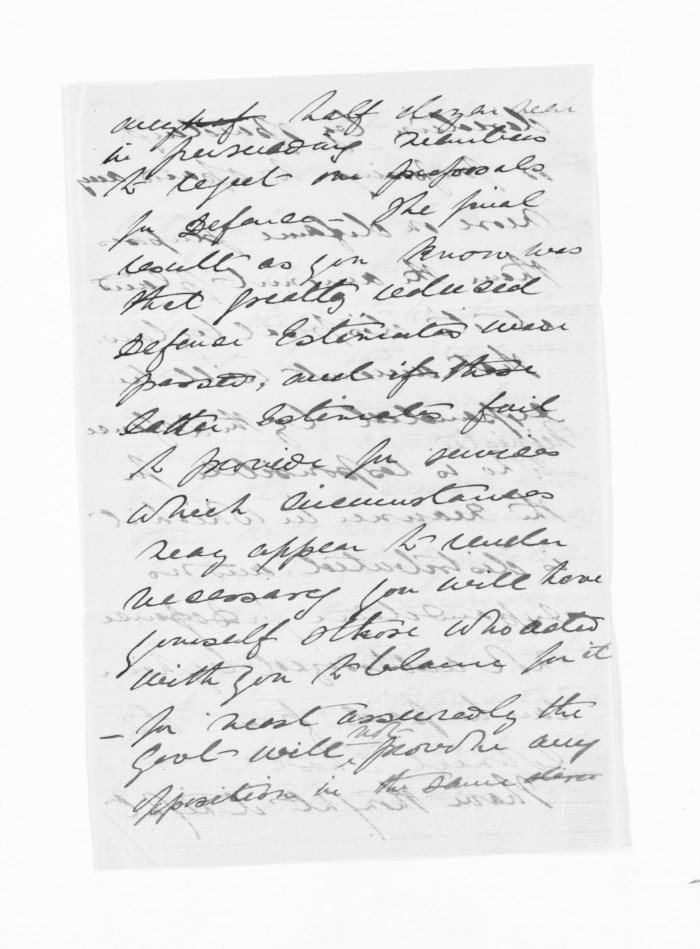 any half dozen men
in persuading members
to reject our proposals
for Defence — The final
result as you know was
that greatly reduced
Defence Estimates were
passed, and if these
latter Estimates fail
to provide for services
which circumstances
may appear to render
necessary you will have
yourself & those who acted
with you to blame for it
— for most assuredly the
Govt will not provoke any
opposition in the same